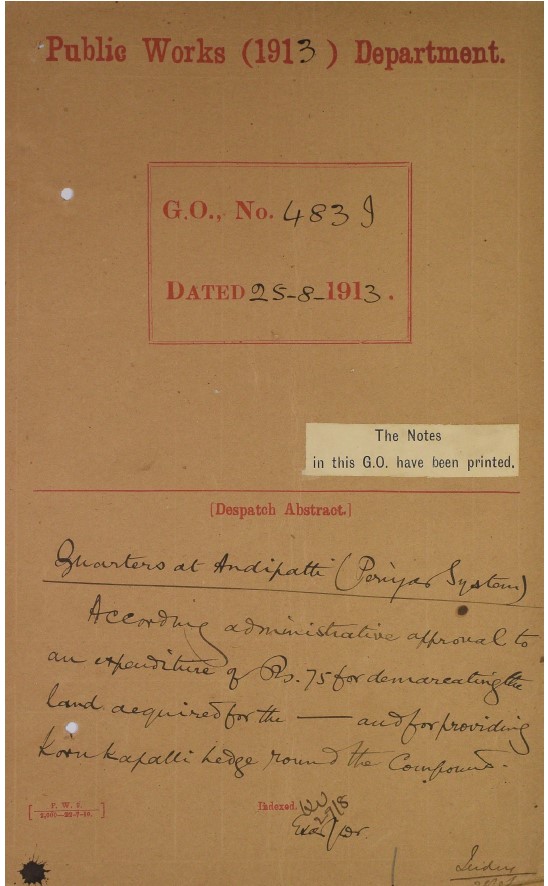 Public Works (1913) Department.
G.O., No. 483 I
DATED 25-8-1913.
The Notes
in this G.O. have been printed.
[Despatch Abstract.]
Quarters at Andipatti (Periyar System)
According administrative approval to
an expenditure of Rs. 75 for demarcating the
land acquired for the — and for providing
Korukapalli hedge round the Compound.
Indexed.
27/8
Exd.
Dr.
Index